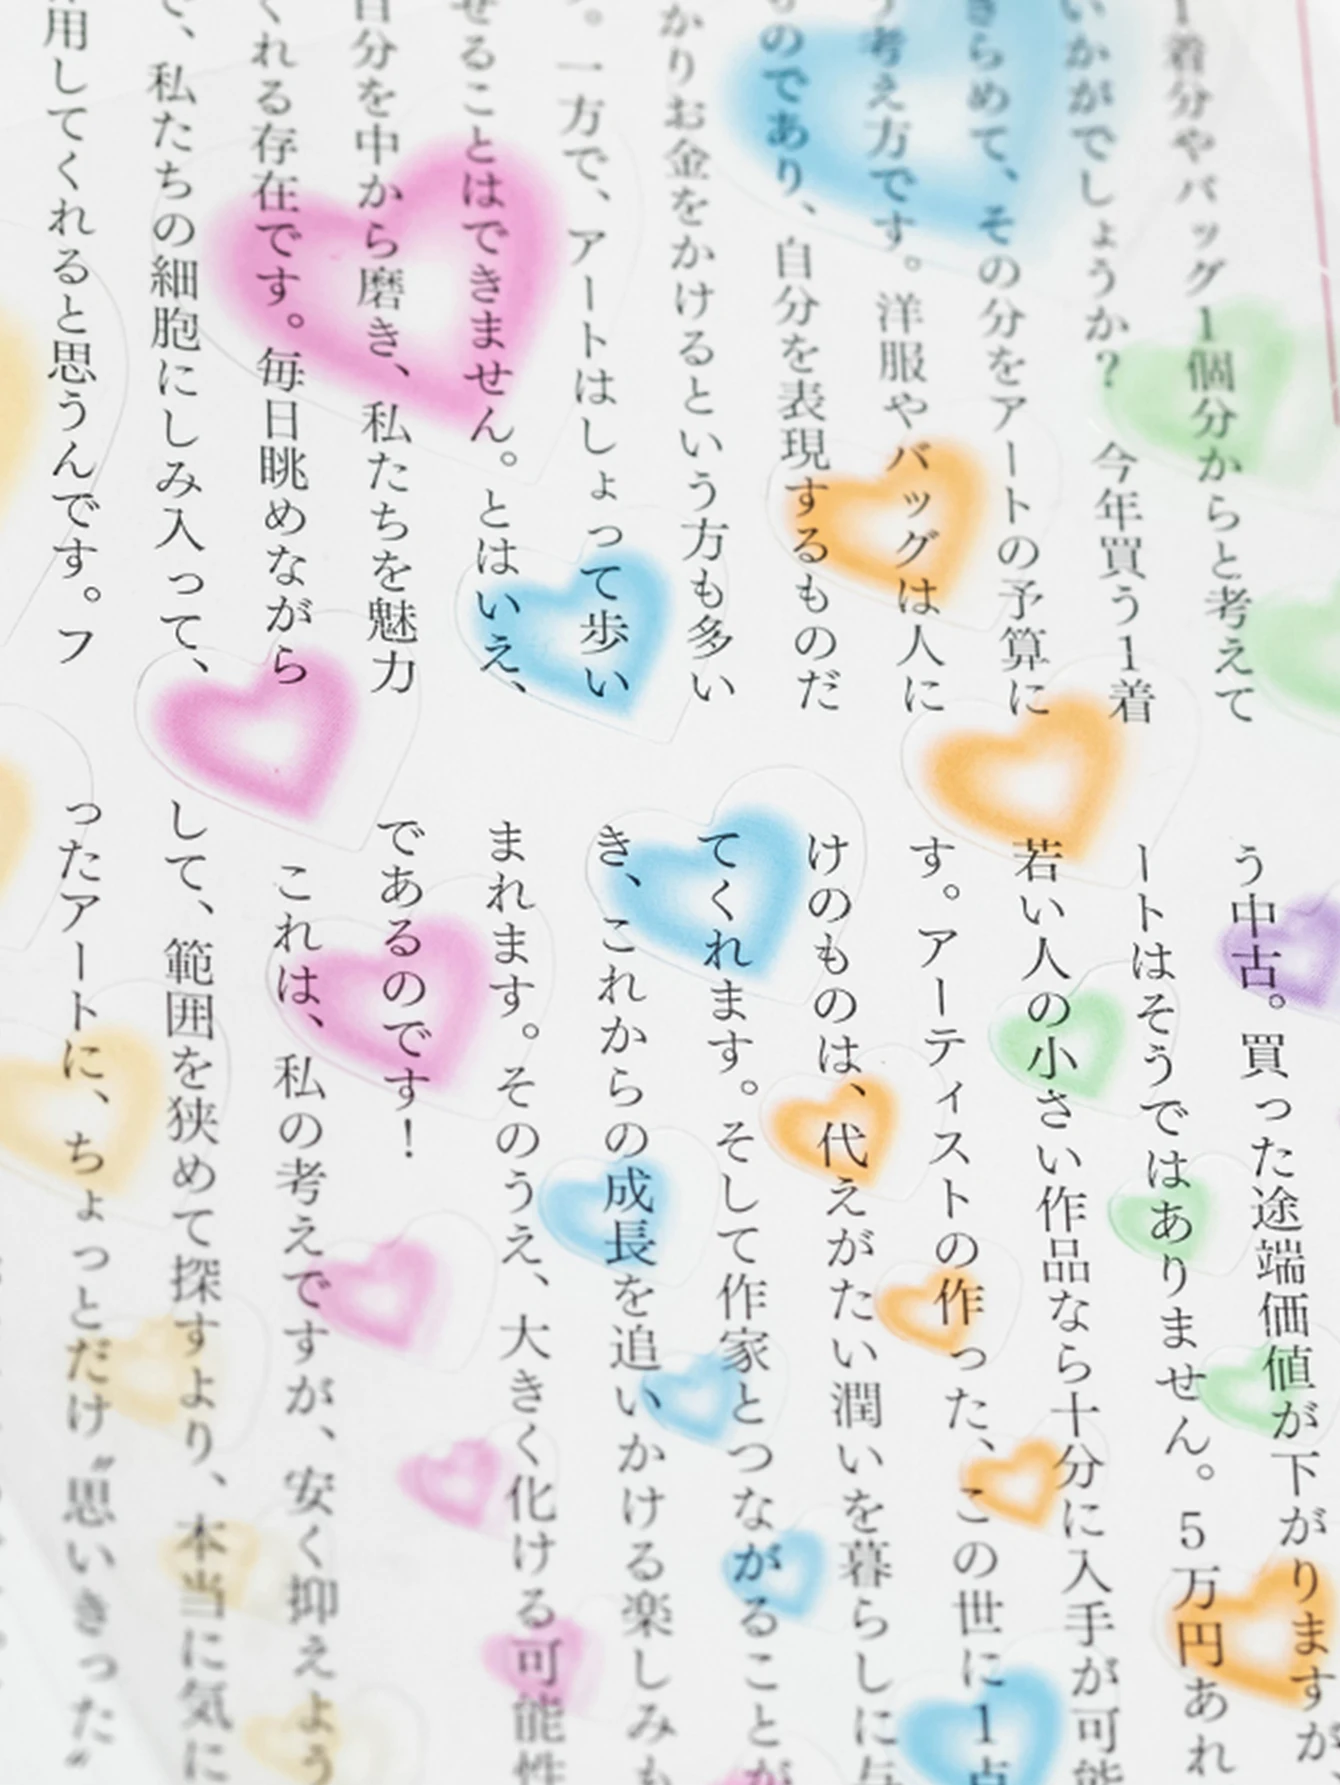 1着分やバッグ1個分からと考えて
いかがでしょうか？　今年買う1着
きらめて、その分をアートの予算に
う考え方です。洋服やバッグは人に
ものであり、自分を表現するものだ
かりお金をかけるという方も多い
。一方で、アートはしょって歩い
せることはできません。とはいえ、
自分を中から磨き、私たちを魅力
くれる存在です。毎日眺めながら
で、私たちの細胞にしみ入って、
用してくれると思うんです。フ
う中古。買った途端価値が下がりますが
ートはそうではありません。5万円あれ
若い人の小さい作品なら十分に入手が可能
す。アーティストの作った、この世に1点
けのものは、代えがたい潤いを暮らしに与
てくれます。そして作家とつながることが
き、これからの成長を追いかける楽しみも
まれます。そのうえ、大きく化ける可能性
であるのです！
これは、私の考えですが、安く抑えよう
して、範囲を狭めて探すより、本当に気に
ったアートに、ちょっとだけ〝思いきった〟